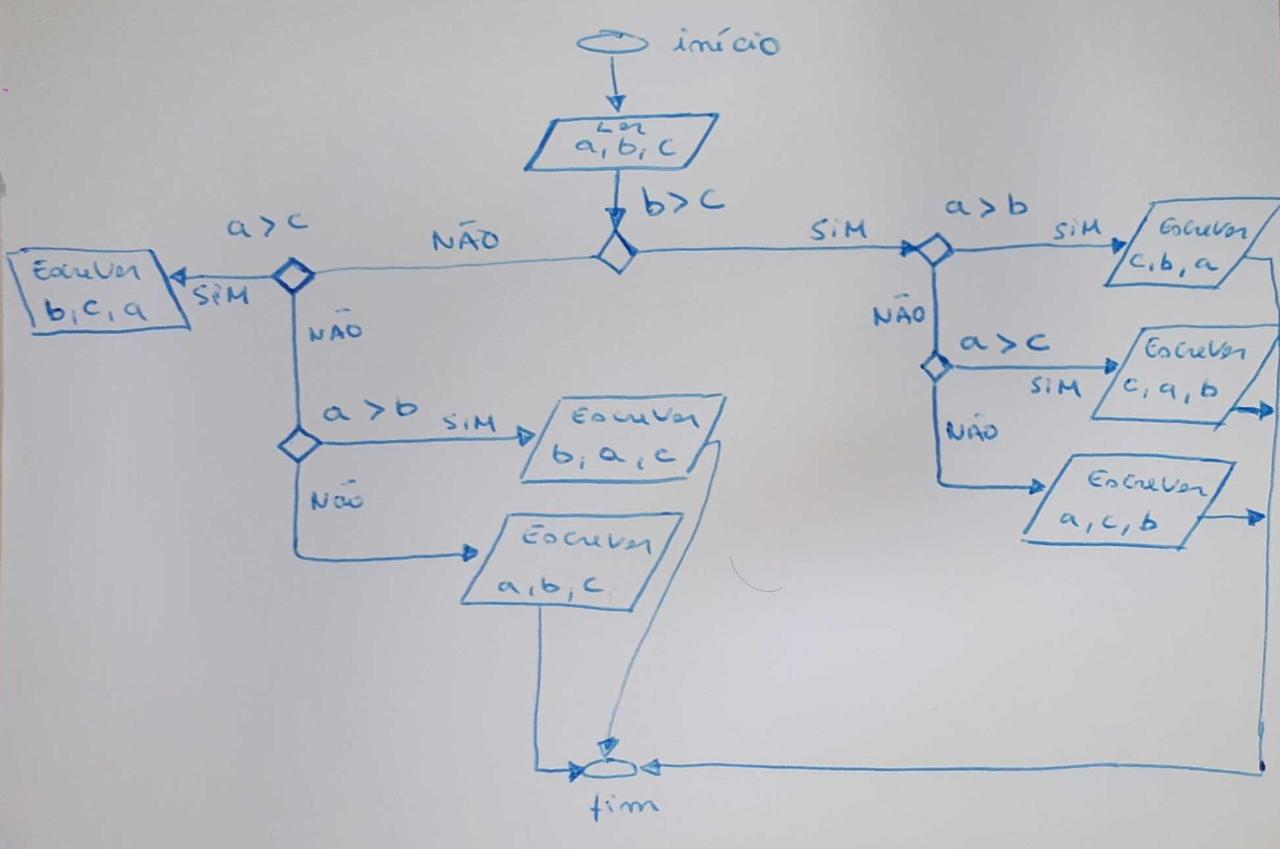 início
Ler
a, b, c
b > c
NÃO
SiM
a > c
SiM
Escrever
b, c, a
NÃO
a > b
SiM
Escrever
b, a, c
NÃO
Escrever
a, b, c
a > b
SiM
Escrever
c, b, a
NÃO
a > c
SiM
Escrever
c, a, b
NÃO
Escrever
a, c, b
fim